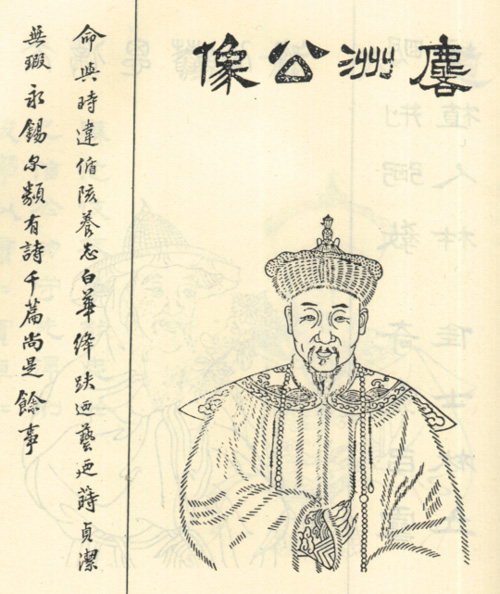 麐洲公像
命與時違循陔養志白華絳趺迺藝迺蒔貞潔
無瑕永錫尔類有詩千篇尚是餘事